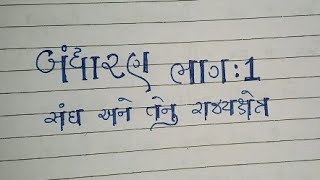 બંધારણ ભાગ:1
સંઘ અને તેનુ રાજ્યક્ષેત્ર